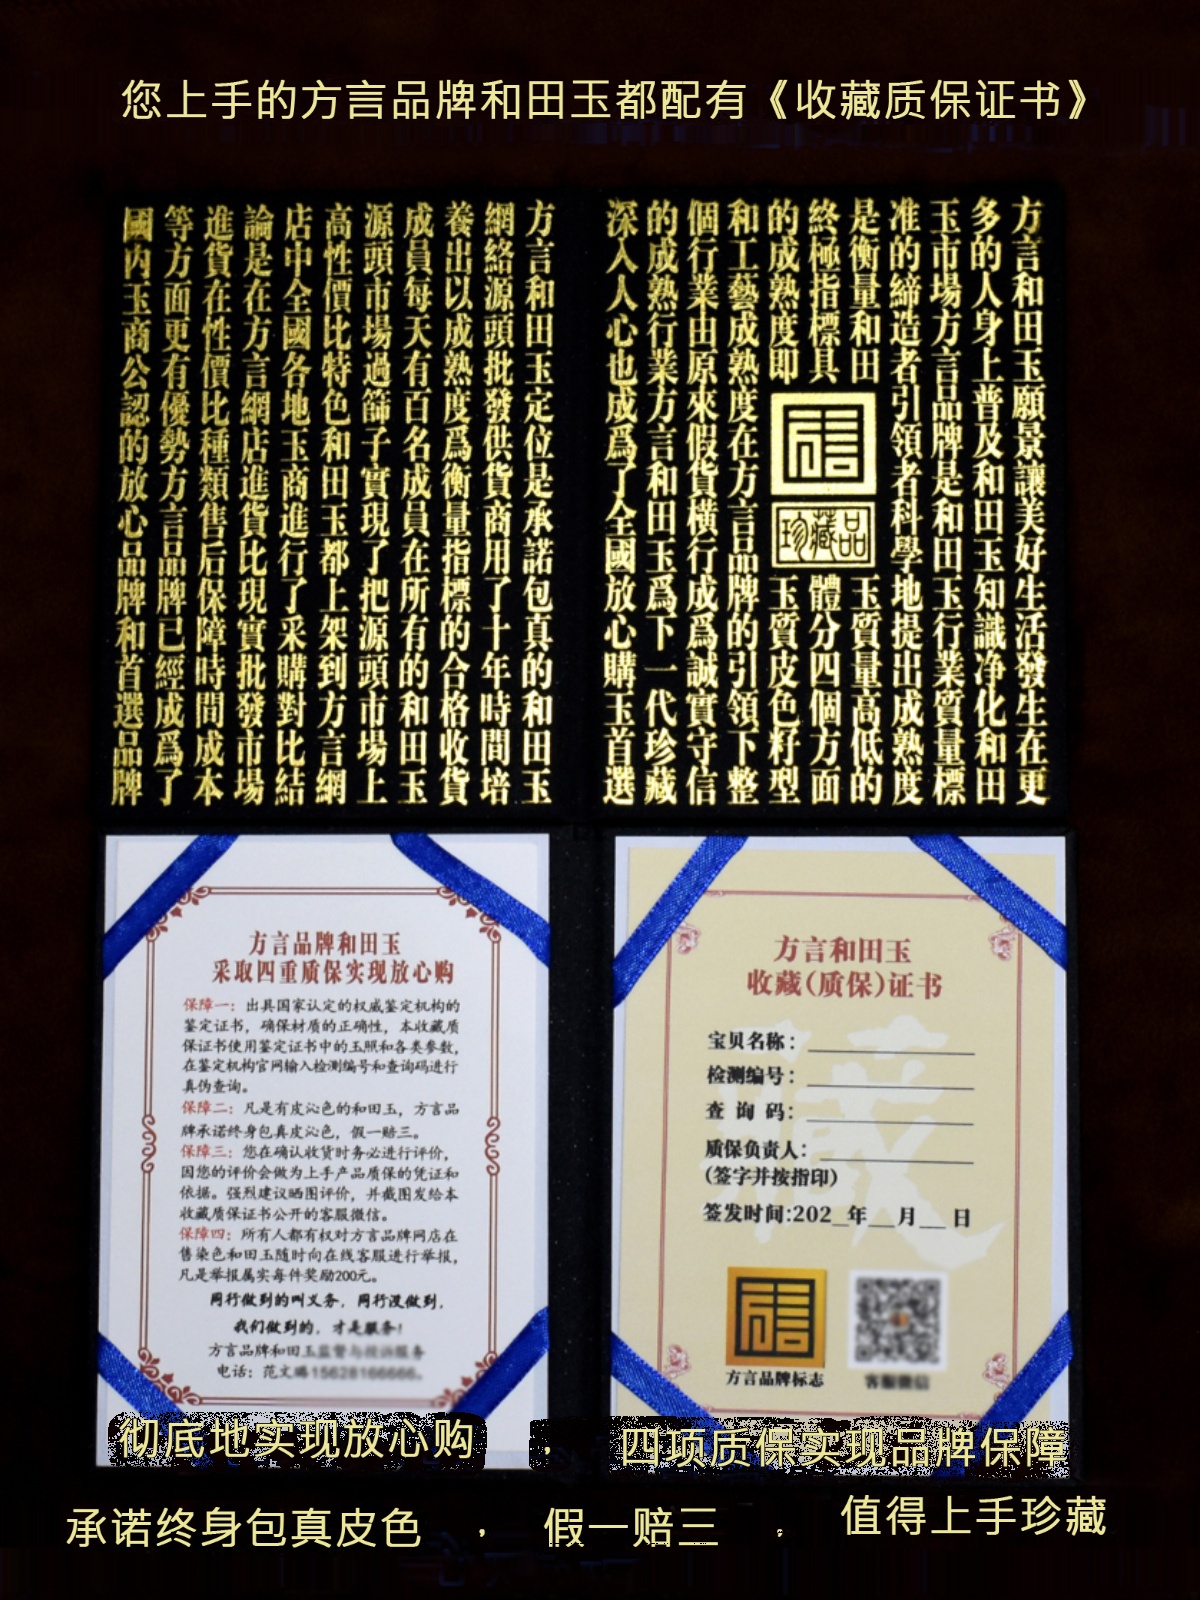 您上手的方言品牌和田玉都配有《收藏质保证书》
方言和田玉願景讓美好生活發生在更
多的人身上普及和田玉知識净化和田
玉市場方言品牌是和田玉行業質量標
准的締造者引領者科學地提出成熟度
是衡量和田玉質量高低的
終極指標具體分四個方面
的成熟度即玉質皮色籽型
珍藏品
和工藝成熟度在方言品牌的引領下整
個行業由原來假貨橫行成爲誠實守信
的成熟行業方言和田玉爲下一代珍藏
深入人心也成爲了全國放心購玉首選
方言和田玉定位是承諾包真的和田玉
網絡源頭批發供貨商用了十年時間培
養出以成熟度爲衡量指標的合格收貨
成員每天有百名成員在所有的和田玉
源頭市場過篩子實現了把源頭市場上
高性價比特色和田玉都上架到方言網
店中全國各地玉商進行了采購對比結
論是在方言網店進貨比現實批發市場
進貨在性價比種類售后保障時間成本
等方面更有優勢方言品牌已經成爲了
國内玉商公認的放心品牌和首選品牌
方言品牌和田玉
采取四重质保实现放心购
保障一：出具国家认定的权威鉴定机构的
鉴定证书，确保材质的正确性，本收藏质
保证书使用鉴定证书中的玉照和各类参数，
在鉴定机构官网输入检测编号和查询码进行
真伪查询。
保障二：凡是有皮沁色的和田玉，方言品
牌承诺终身包真皮沁色，假一赔三。
保障三：您在确认收货时务必进行评价，
因您的评价会做为上手产品质保的凭证和
依据。强烈建议晒图评价，并截图发给本
收藏质保证书公开的客服微信。
保障四：所有人都有权对方言品牌网店在
售染色和田玉随时向在线客服进行举报，
凡是举报属实每件奖励200元。
同行做到的叫义务，同行没做到，
我们做到的，才是服务！
方言品牌和田玉监督与投诉服务
电话：范文赐15628166666。
方言和田玉
收藏(质保)证书
宝贝名称：
检测编号：
查 询 码：
质保负责人：
(签字并按指印)
签发时间:202_年__月__日
方言品牌标志
客服微信
彻底地实现放心购 ， 四项质保实现品牌保障
承诺终身包真皮色 ， 假一赔三 ， 值得上手珍藏